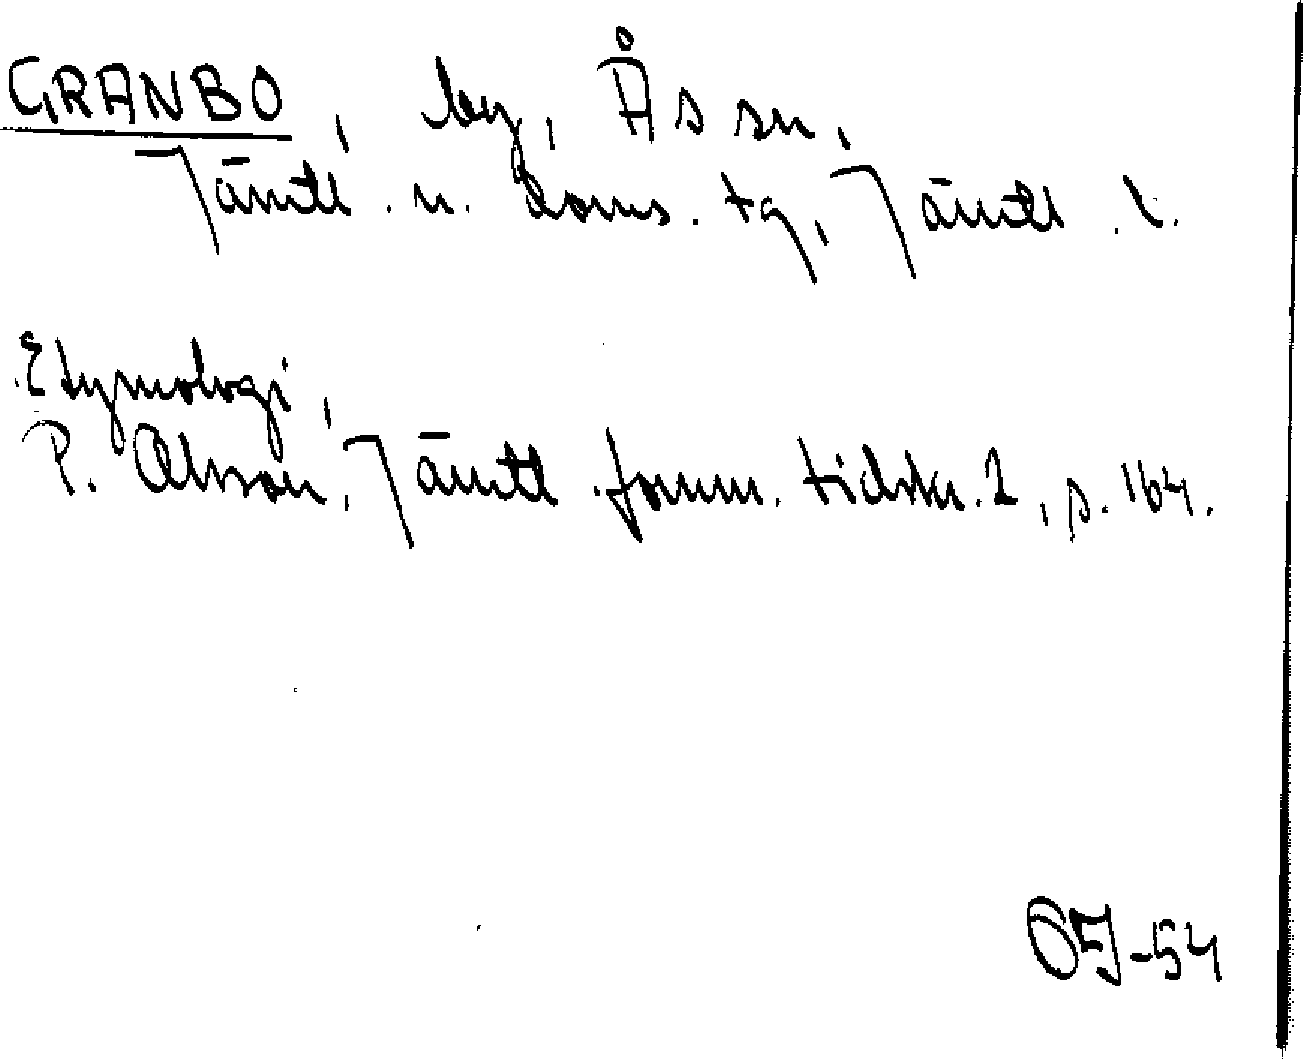 GRANBO, by, Ås sn,
Jämtl. n. doms. tg, Jämtl. l.
Etymologi,
P. Olsson, Jämtl. fornm. tidskr. 2, s. 164.
-54